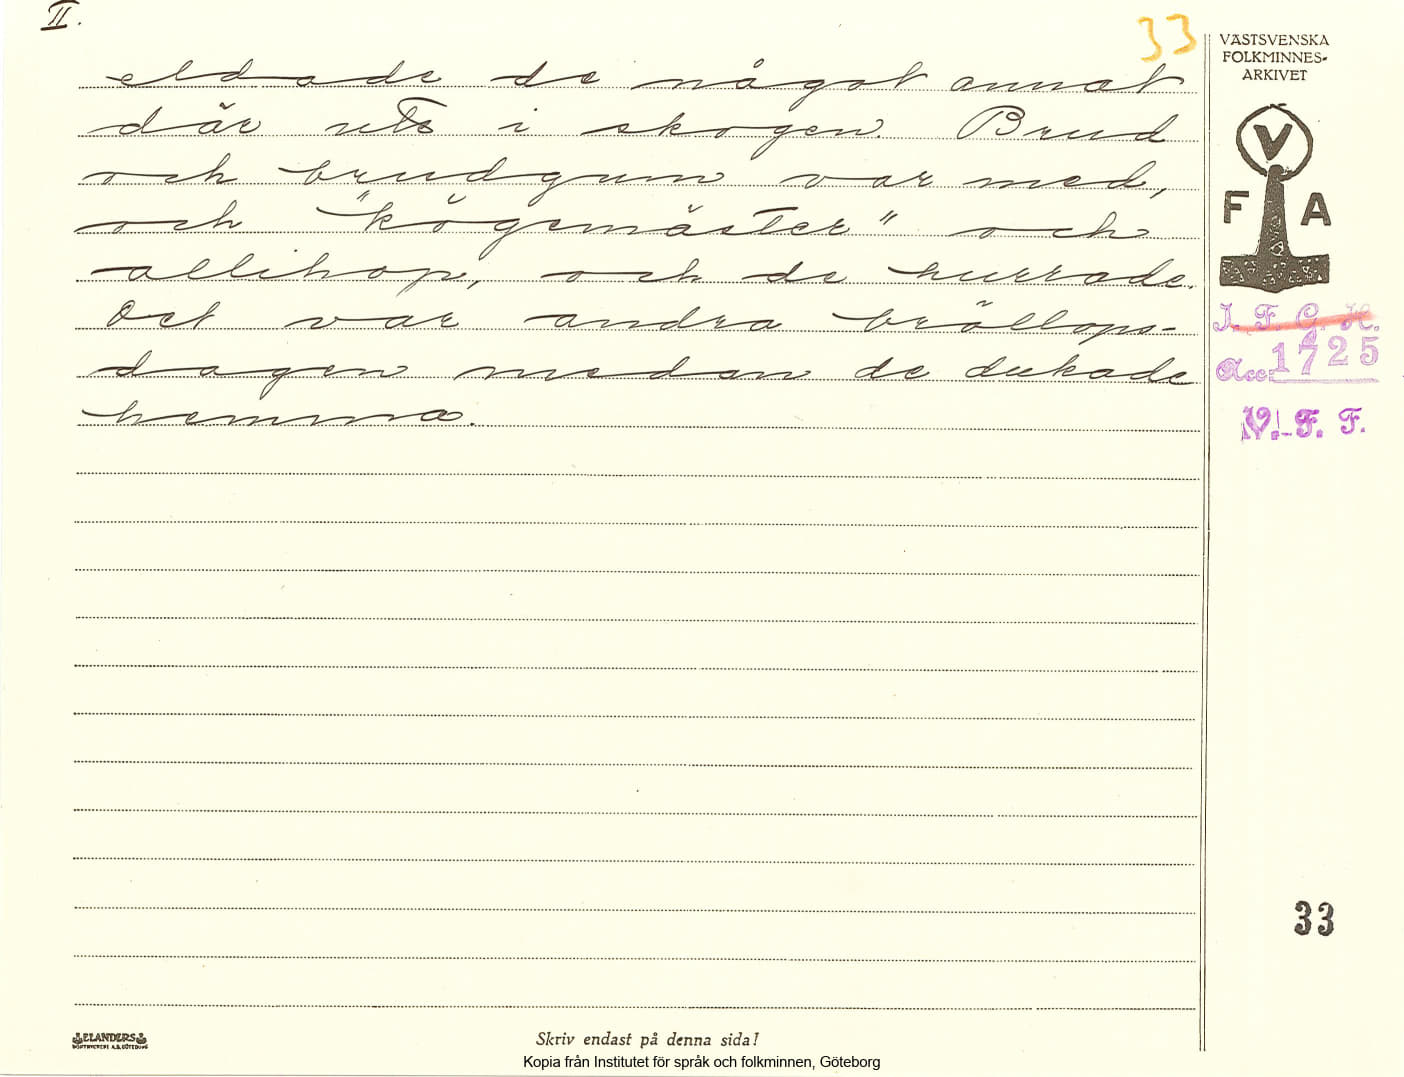 II.
33
eldade de något annat
där ute i skogen. Brud
och brudgum var med,
och "kögemäster" och
allihop, och de hurrade.
Det var andra bröllops-
dagen medan de dukade
hemma.
VÄSTSVENSKA
FOLKMINNES-
ARKIVET
V
F A
I. F. G. H.
Acc. 1725
V. F. F.
33
ELANDERS
BOKTRYCKERI A.B. GÖTEBORG
Skriv endast på denna sida!
Kopia från Institutet för språk och folkminnen, Göteborg